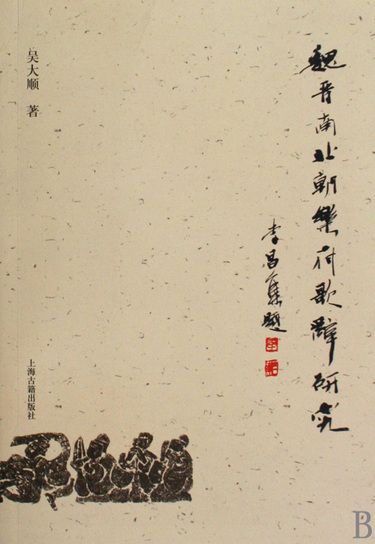 魏晋南北朝樂府歌辭研究
李昌集題
吴大顺 著
上海古籍出版社
B